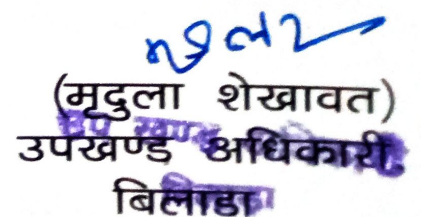 (मृदुला शेखावत)
उपखण्ड अधिकारी
बिलाडा